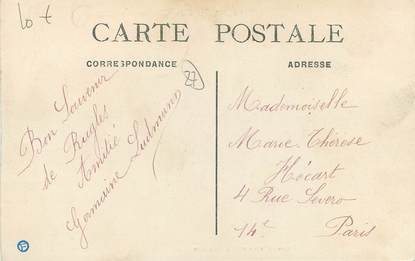 10 +
CARTE POSTALE
CORRESPONDANCE
27
ADRESSE
Bon Souvenir
de Rugles
Amitié
Germaine Ludmann
Mademoiselle
Marie Thérèse
Hécart
4 Rue Severo
14e Paris